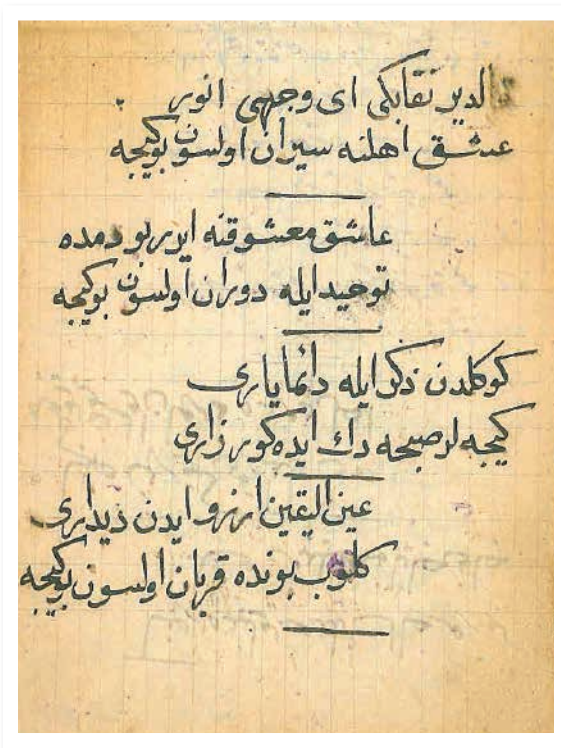 قالدير نقابكى اى وجهى انور
عشق اهلنه سيران اولسون بوكيجه
عاشق معشوقنه ايرر بو دمده
توحيد ايله دوران اولسون بوكيجه
كوكلدن ذكر ايله دائما يارى
كيجه لر صبحه دك ايده كور زارى
عين اليقين ارزو ايدن ديدارى
كلوب بونده قربان اولسون بوكيجه